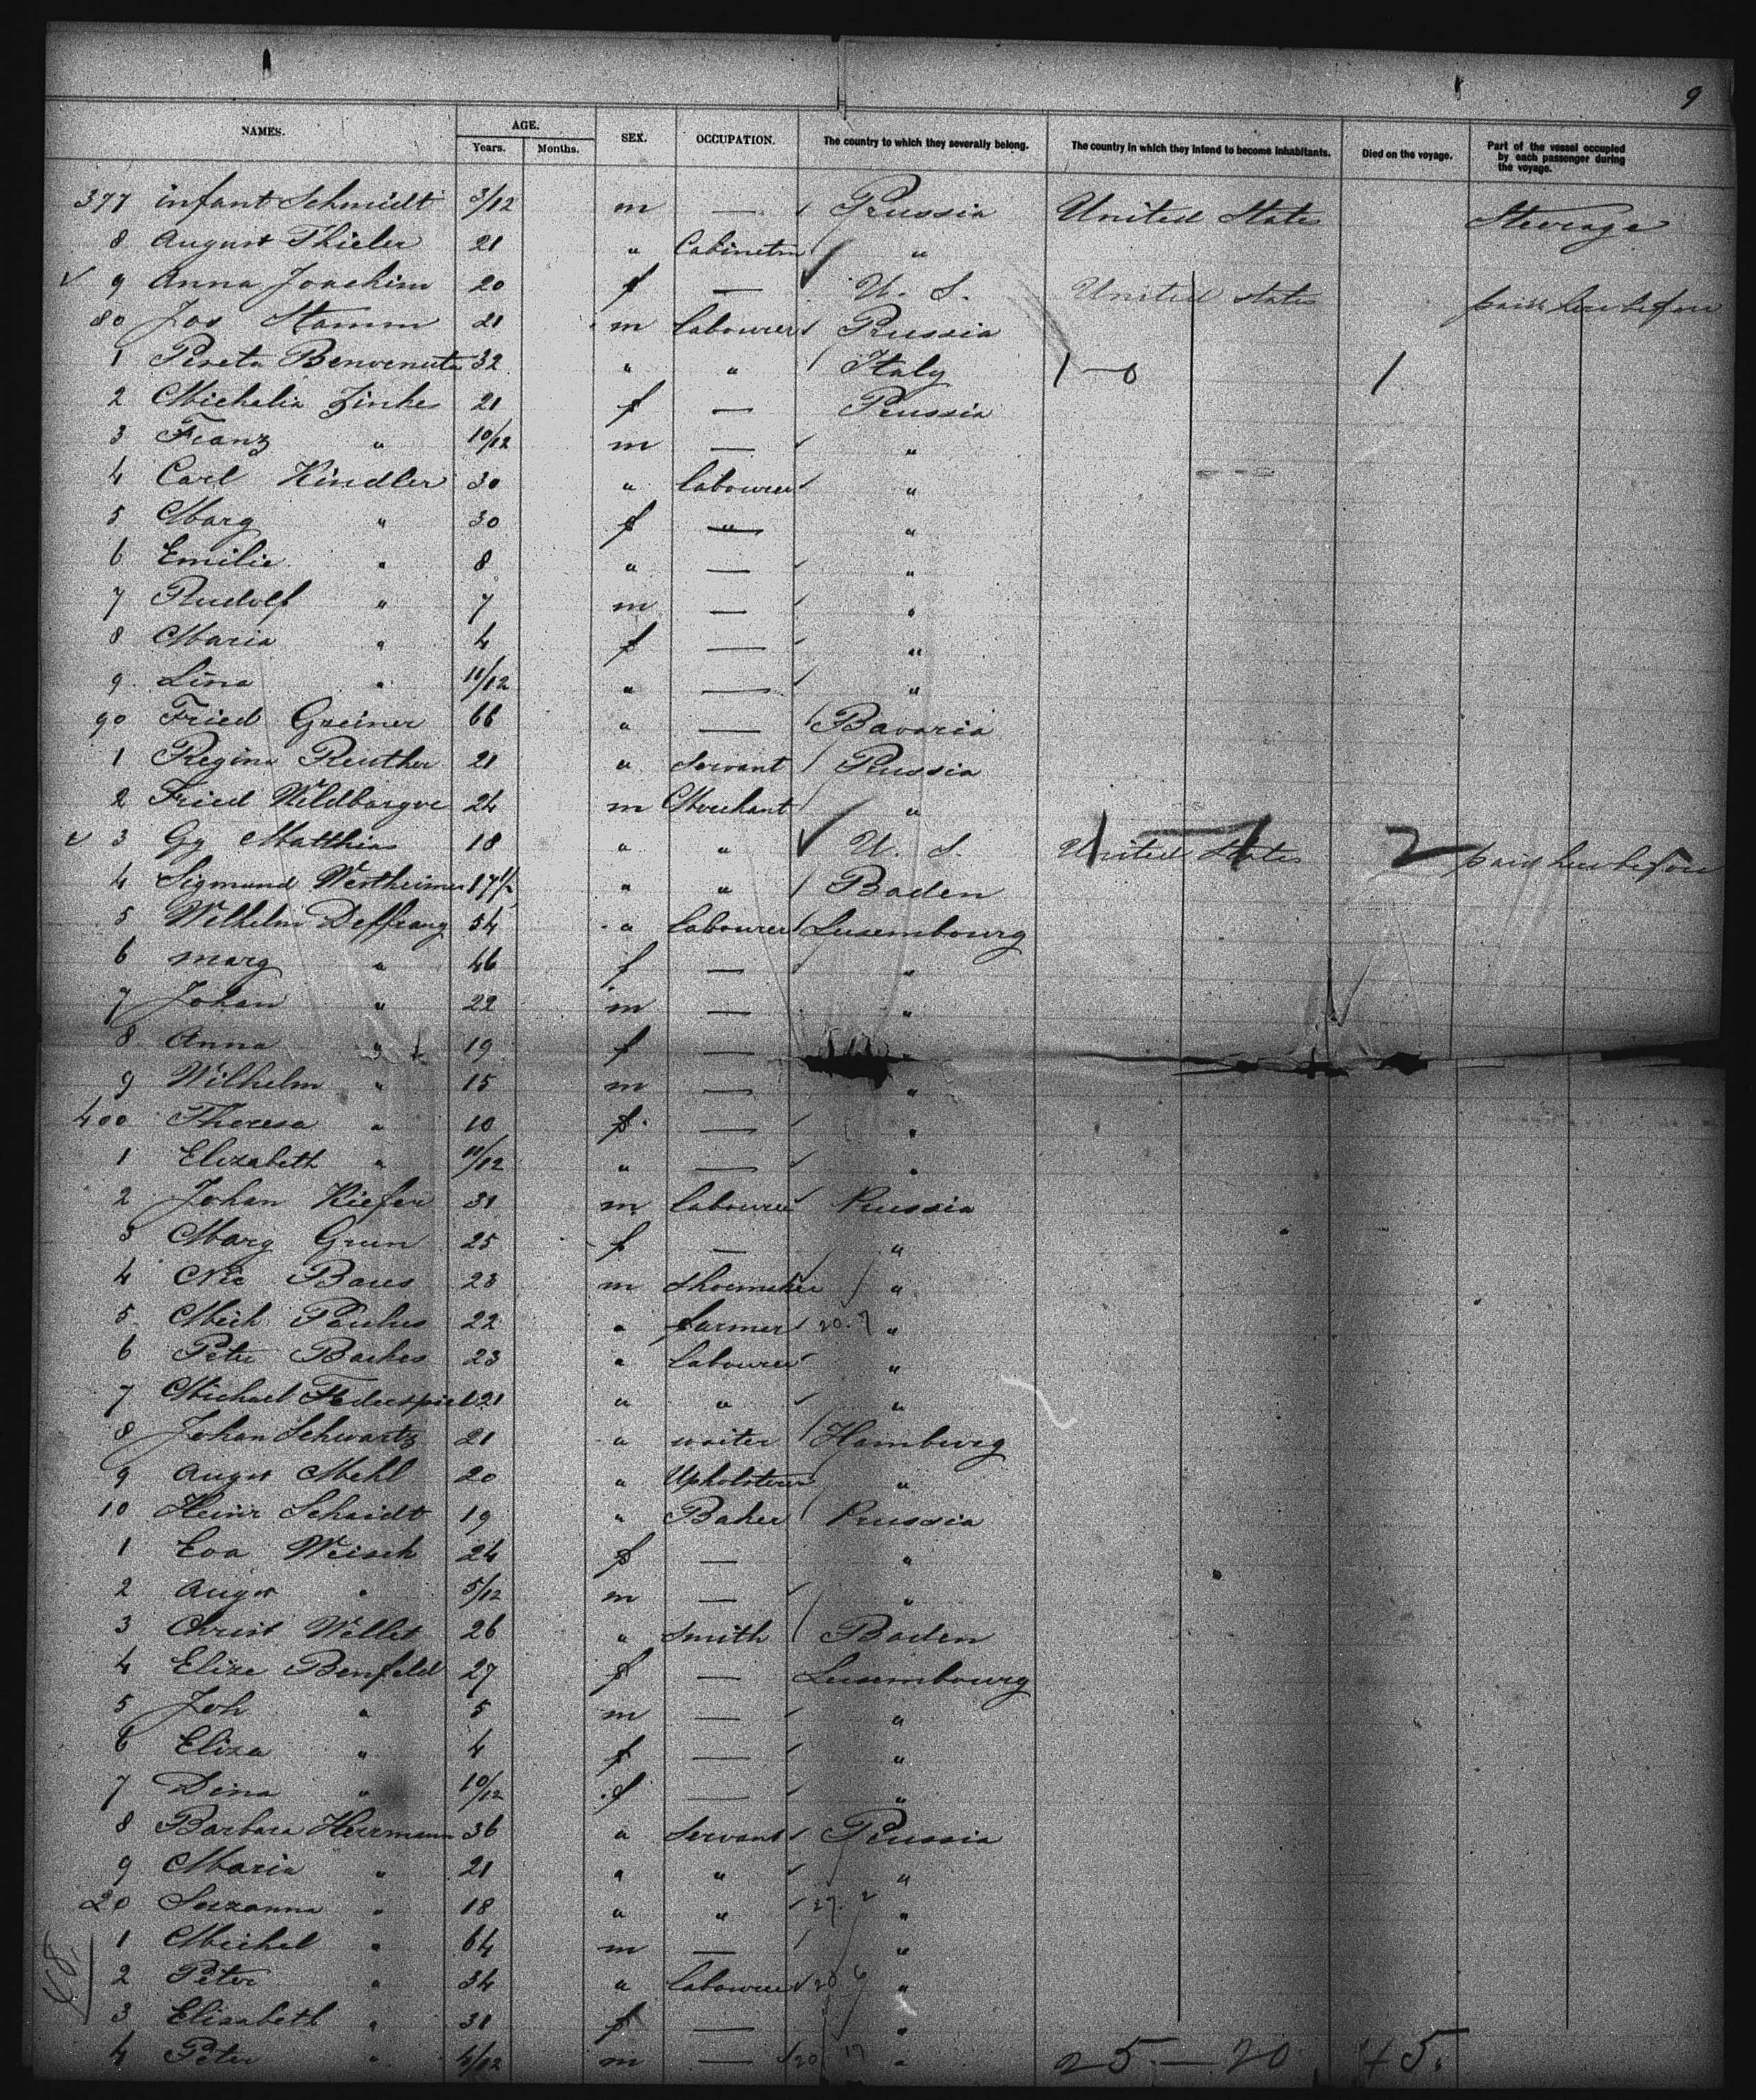 9
NAMES. AGE. SEX. OCCUPATION. The country to which they severally belong. The country in which they intend to become inhabitants. Died on the voyage. Part of the vessel occupied by each passenger during the voyage.
Years. Months.
377 infant Schmidt 3/12 m — Prussia United States Steerage
8 August Thieler 21 " Cabinetm "
9 Anna Joachim 20 f — U. S. United States paid her before
80 Jos Stamm 21 m labourer Prussia
1 Pereta Benvenuta 32 " " Italy 1 — 0 1
2 Michelia Zinke 21 f — Prussia
3 Franz " 10/12 m — "
4 Carl Kindler 30 " labourer "
5 Marg " 30 f — "
6 Emilie " 8 " — "
7 Rudolf " 7 m — "
8 Maria " 4 f — "
9 Lina " 11/12 " — "
90 Fried Greiner 66 " — Bavaria
1 Regina Reuther 21 " Servant Prussia
2 Fried 24 m Merchant "
3 Gg Matthias 18 " " U. S. United States 1 — 1 2 paid her before
4 Sigmund Wertheimer 17 1/2 " " Baden
5 Wilhelm Deffrang 54 " labourer Luxembourg
6 marg " 46 f — "
7 Johan " 22 m — "
8 Anna " 19 f — "
9 Wilhelm " 15 m — "
400 Theresa " 10 f — "
1 Elizabeth " 11/12 " — "
2 Johan Kiefer 31 m labourer Prussia
3 Marg Grun 25 f — "
4 Nic Baus 23 m Shoemaker "
5 Mich Paulus 22 " farmer 20. 7 "
6 Peter Backes 23 " labourer "
7 Michael Federspiel 21 " " "
8 Johan Schwartz 21 " waiter Hamburg
9 August Mehl 20 " Upholsterer "
10 Heinr Schaidt 19 " Baker Prussia
1 Eva Weisch 24 f — "
2 August " 5/12 m — "
3 Christ Willet 26 " Smith Baden
4 Elize Benfeld 27 f — Luxembourg
5 Joh " 5 m — "
6 Eliza " 4 f — "
7 Dina " 10/12 f — "
8 Barbara Herrmann 36 " Servant Prussia
9 Maria " 21 " " "
20 Suzanna " 18 " " 27. 2 "
1 Michel " 64 m — "
2 Peter " 34 " labourer 20 6 "
3 Elisabeth " 31 f — "
4 Peter " 4/12 m — 20 17 " 25 — 20 45.
48.